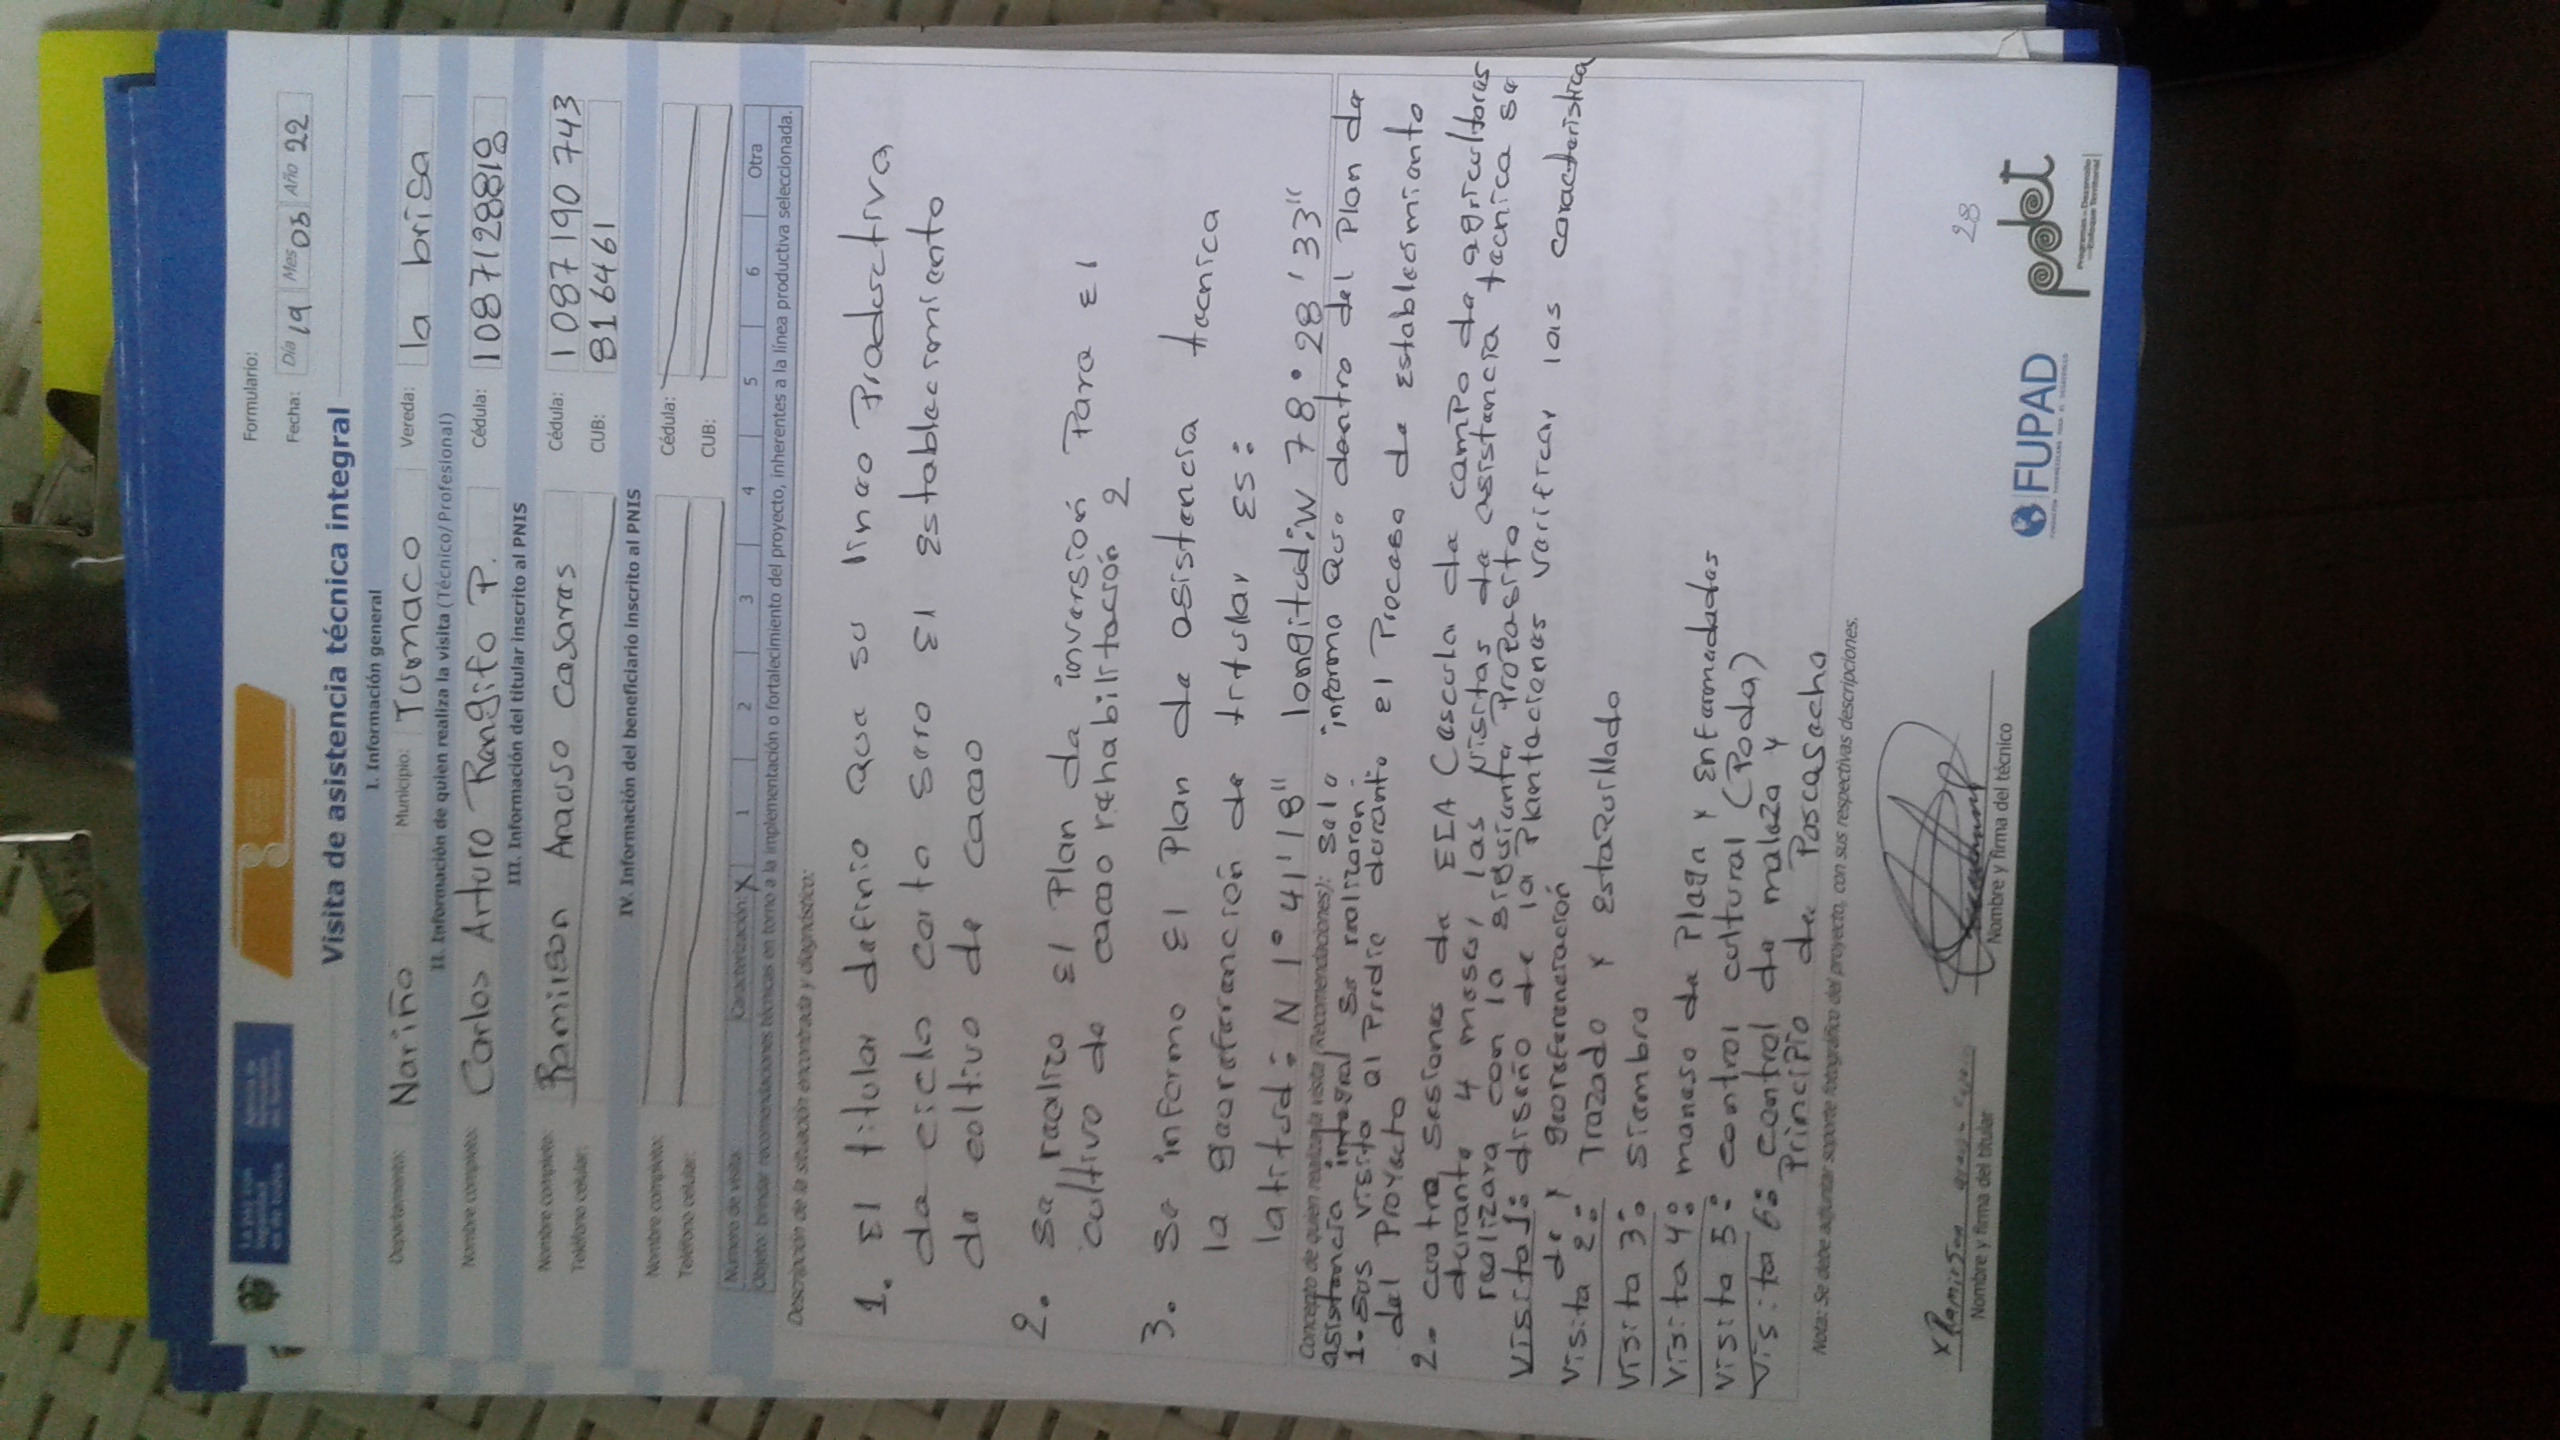 Formulario:
Fecha: Día 19 Mes 03 Año 22
Visita de asistencia técnica integral
I. Información general
Departamento: Nariño Municipio: Tumaco Vereda: la brisa
II. Información de quien realiza la visita (Técnico/Profesional)
Nombre completo: Carlos Arturo Rangifo P. Cédula: 1087128818
III. Información del titular inscrito al PNIS
Nombre completo: Ramilson Arauso Casaras Cédula: 1087190743
Teléfono celular: CUB: 816461
IV. Información del beneficiario inscrito al PNIS
Nombre completo: Cédula:
Teléfono celular: CUB:
Número de visita: Caracterización: X 1 2 3 4 5 6 Otra
Objeto: brindar recomendaciones técnicas en torno a la implementación o fortalecimiento del proyecto, inherentes a la línea productiva seleccionada.
Descripción de la situación encontrada y diagnóstico:
1. El titular definio que su linea Productiva
de ciclo corto sera El Establecimiento
de coltivo de cacao
2. Se realizo El Plan de inversión Para El
cultivo de cacao rehabilitación 2
3. Se informo El Plan de asistencia tecnica
la georeferanción de titular ES:
latitud: N 1° 41' 18" longitud: W 78° 28' 33"
Concepto de quien realiza la visita (Recomendaciones): Sele informa que dentro del Plan de
asistencia integral Se realizaron:
1. Sus visita al Predio durante El Proceso de Establecimiento
del Proyecto
2. cuatro Sesiones de EIA Cascula de camPo de agricultoras
durante 4 meses, las visitas de asistencia tecnica se
realizara con lo siguiente ProPosito
Visita 1: diseño de la Plantaciones Varificar las caracteristica
de y georeferenciación
Visita 2: Trazado y EstaQuillado
Visita 3: Siembra
Visita 4: maneso de Plaga y Enfarmedades
Visita 5: control cultural (Poda)
Visita 6: control de maleza y
Principio de Poscasecha
Nota: Se debe adjuntar soporte fotográfico del proyecto, con sus respectivas descripciones.
28
Nombre y firma del titular
Nombre y firma del técnico
FUPAD
pdet
Programas de Desarrollo
con Enfoque Territorial